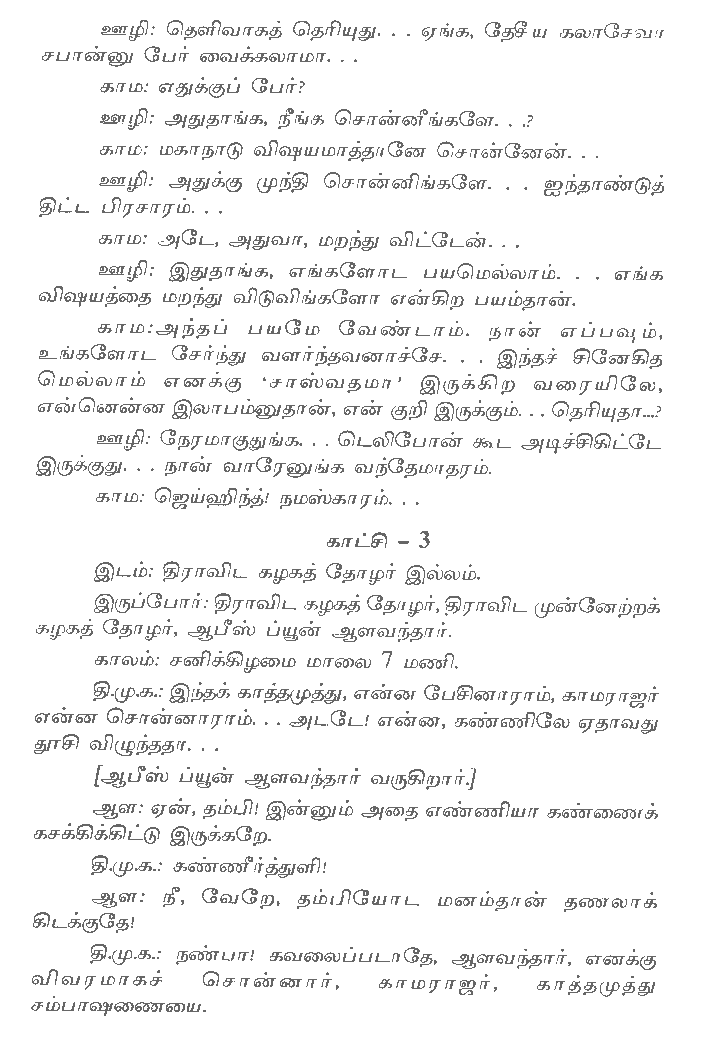 ஊழி: தெளிவாகத் தெரியுது. . . ஏங்க, தேசீய கலாசேவா
சபான்னு பேர் வைக்கலாமா. . .
காம: எதுக்குப் பேர்?
ஊழி: அதுதாங்க, நீங்க சொன்னீங்களே. . .?
காம: மகாநாடு விஷயமாத்தானே சொன்னேன். . .
ஊழி: அதுக்கு முந்தி சொன்னிங்களே. . . ஐந்தாண்டுத்
திட்ட பிரசாரம். . .
காம: அடே, அதுவா, மறந்து விட்டேன். . .
ஊழி: இதுதாங்க, எங்களோட பயமெல்லாம். . . எங்க
விஷயத்தை மறந்து விடுவிங்களோ என்கிற பயம்தான்.
காம:அந்தப் பயமே வேண்டாம். நான் எப்பவும்,
உங்களோட சேர்ந்து வளர்ந்தவனாச்சே. . . இந்தச் சினேகித
மெல்லாம் எனக்கு ‘சாஸ்வதமா’ இருக்கிற வரையிலே,
என்னென்ன இலாபம்னுதான், என் குறி இருக்கும். . . தெரியுதா...?
ஊழி: நேரமாகுதுங்க. . . டெலிபோன் கூட அடிச்சிகிட்டே
இருக்குது. . . நான் வாரேனுங்க வந்தேமாதரம்.
காம: ஜெய்ஹிந்த்! நமஸ்காரம். . .
காட்சி – 3
இடம்: திராவிட கழகத் தோழர் இல்லம்.
இருப்போர்: திராவிட கழகத் தோழர், திராவிட முன்னேற்றக்
கழகத் தோழர், ஆபீஸ் ப்யூன் ஆளவந்தார்.
காலம்: சனிக்கிழமை மாலை 7 மணி.
தி.மு.க.: இந்தக் காத்தமுத்து, என்ன பேசினாராம், காமராஜர்
என்ன சொன்னாராம். . . அடடே! என்ன, கண்ணிலே ஏதாவது
தூசி விழுந்ததா. . .
[ஆபீஸ் ப்யூன் ஆளவந்தார் வருகிறார்.]
ஆள: ஏன், தம்பி! இன்னும் அதை எண்ணியா கண்ணைக்
கசக்கிக்கிட்டு இருக்கறே.
தி.மு.க.: கண்ணீர்த்துளி!
ஆள: நீ, வேறே, தம்பியோட மனம்தான் தணலாக்
கிடக்குதே!
தி.மு.க.: நண்பா! கவலைப்படாதே, ஆளவந்தார், எனக்கு
விவரமாகச் சொன்னார், காமராஜர், காத்தமுத்து
சம்பாஷணையை.